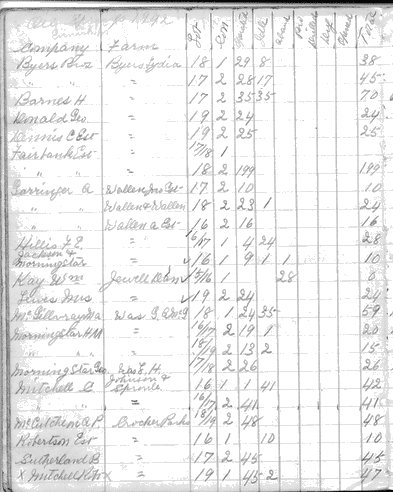 Company Farm Lot Con Total
Byers Bros Byers Lydia 18 1 29 8 38
" " " 17 2 28 17 45
Barnes H " 17 2 35 35 70
Donald Geo " 19 2 24 24
Dennis C Est " 19 2 25 25
Fairbank Est " 17/18 1
" " " 18 2 199 199
Garringer A Wallen Jno Est 17 2 10 10
" " Wallen & Wallen 18 2 23 1 24
" " Wallen A Est 16 2 16 16
Hillis F E " 16/17 1 4 24 28
Jackson &
Morningstar " 16 1 9 1 1 10
Kay Wm Jewell 15/16 1 28 0
Lewis Mrs " 19 2 24 24
McGillvray Ma Was G. A McG 18 1 24 35 59
Morningstar H M " 16/17 2 19 1 20
" " " 18/19 2 13 2 15
Morningstar Geo Was E. H. 17/18 2 26 26
Mitchell C Johnson & Sproule 16 1 1 41 42
" " 16/17 2 41 41
McCutchen A P Crocker Parks 18/19 2 48 48
Robertson Est " 16 1 10 10
Sutherland B " 17 2 45 45
x Mitchell " 19 1 45 2 47